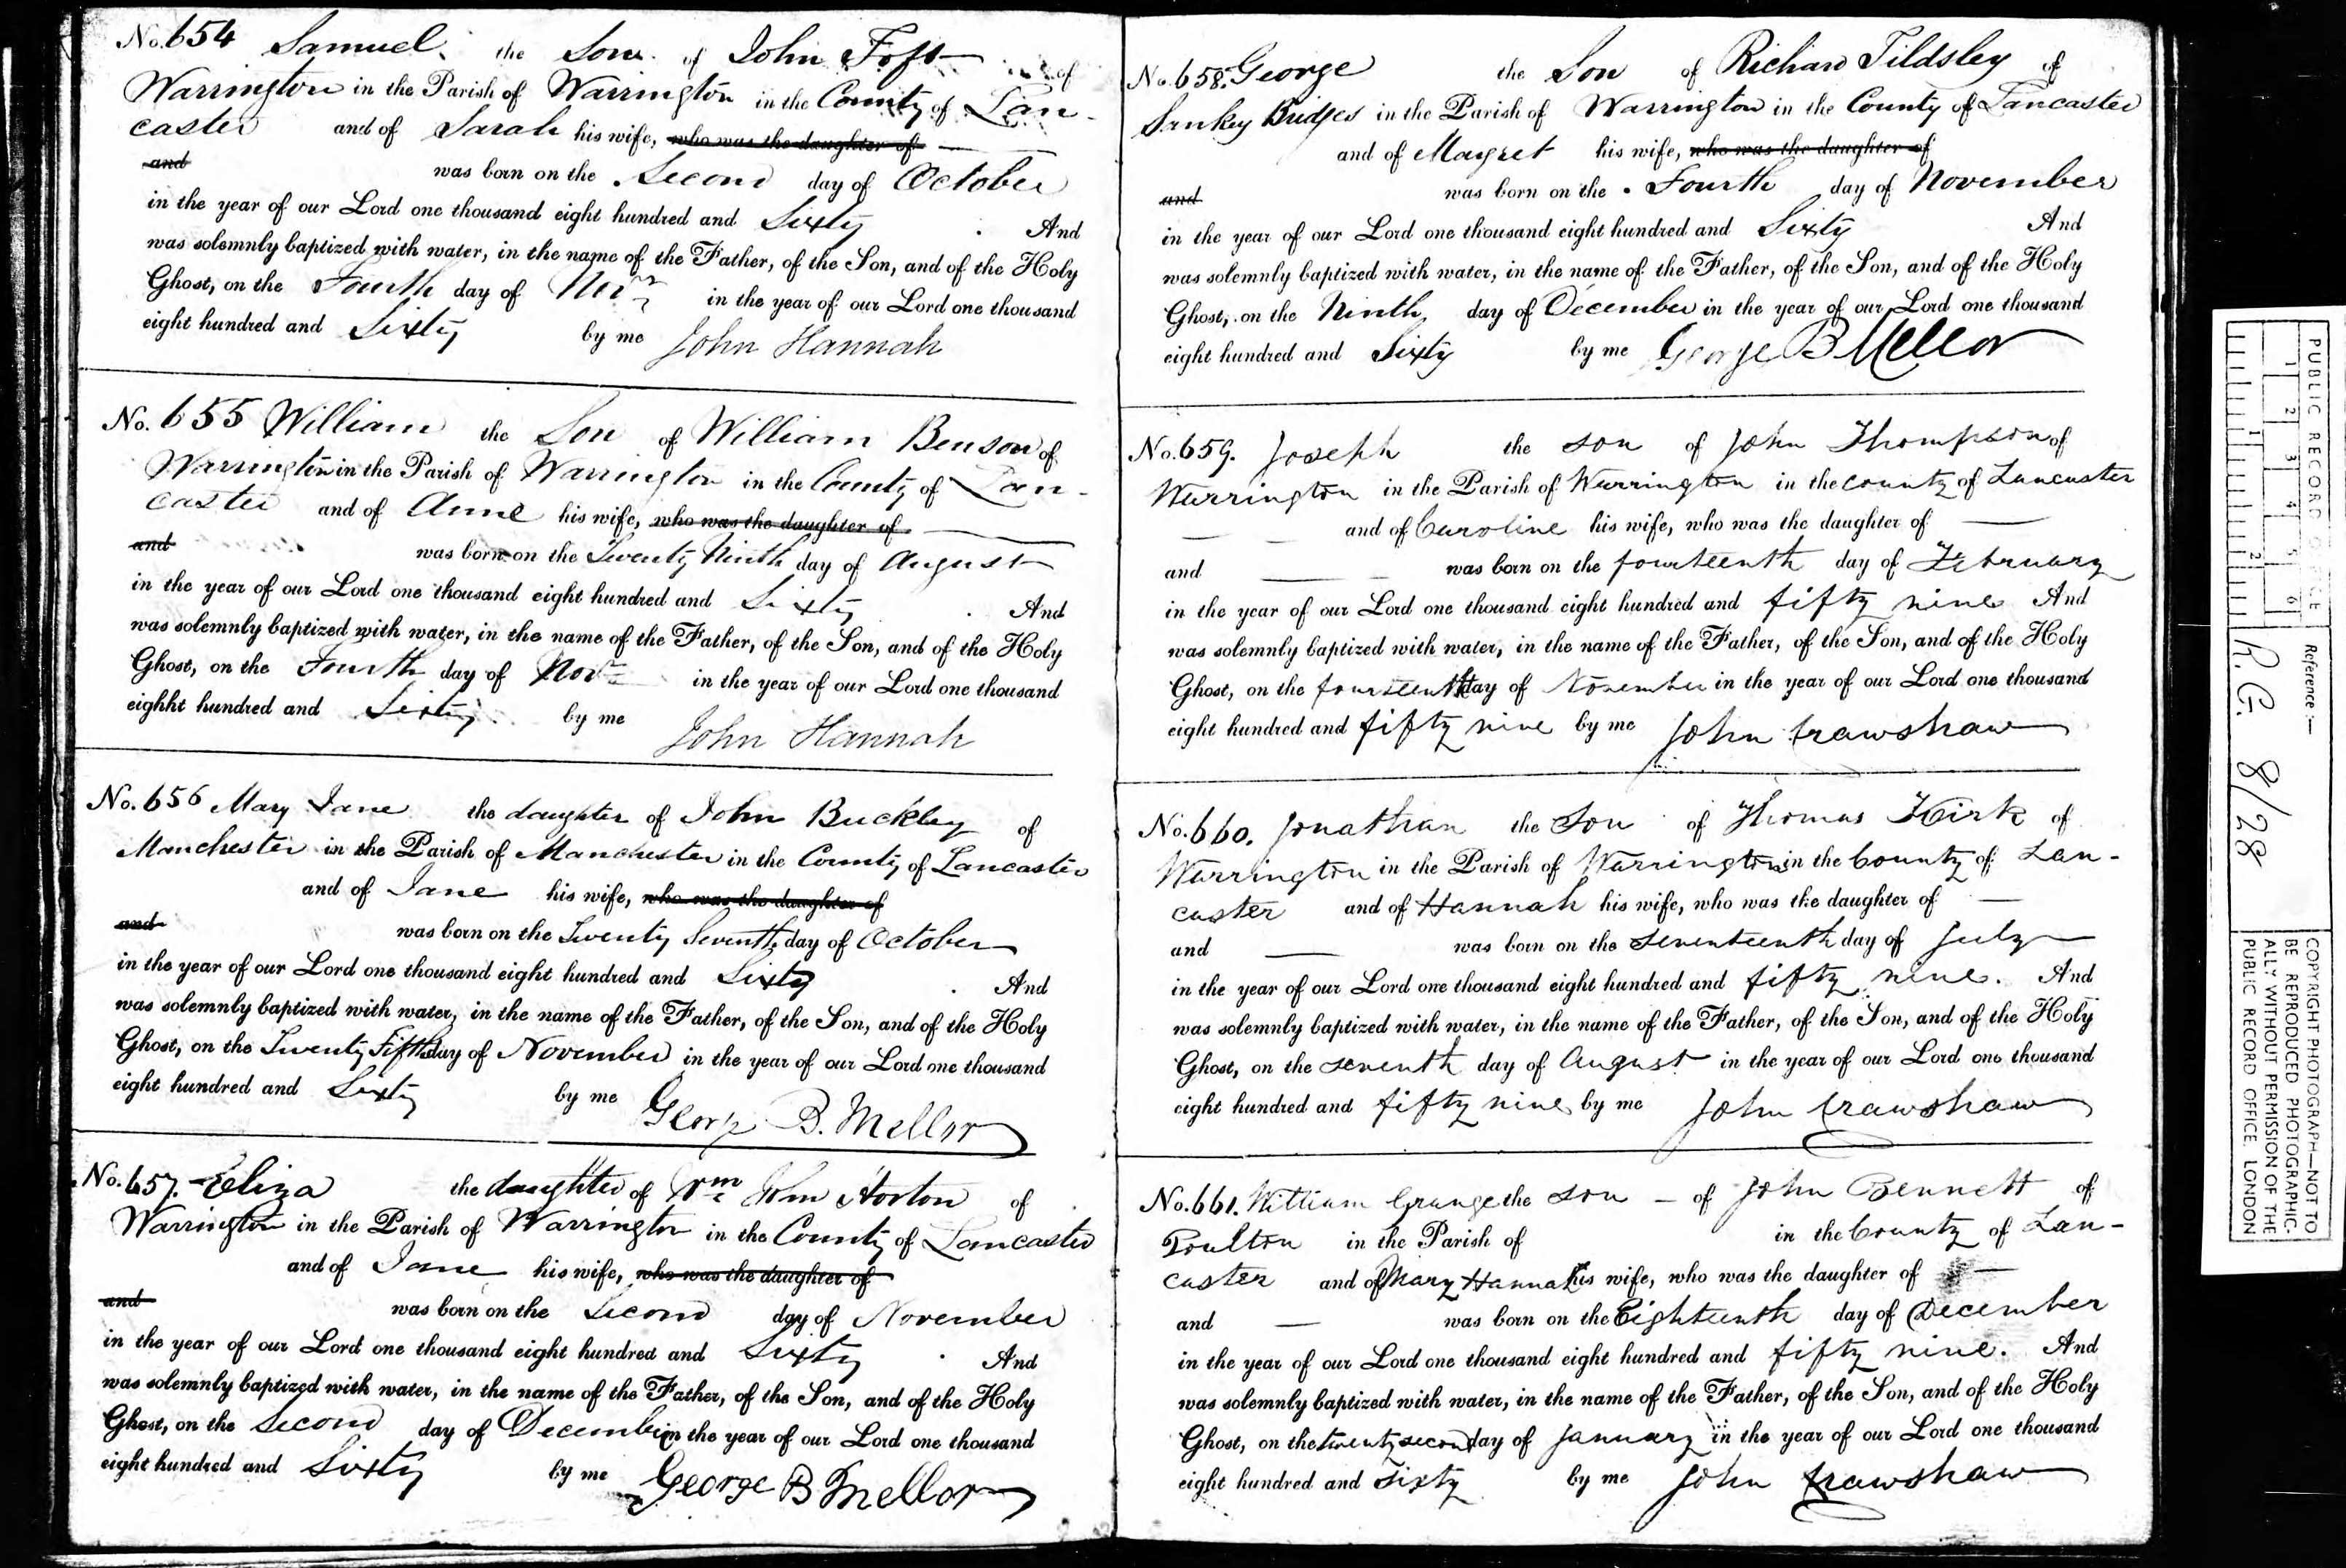 No. 654 Samuel the Son of John Foft of
Warrington in the Parish of Warrington in the County of Lan-
caster and of Sarah his wife, who was the daughter of
and was born on the Second day of October
in the year of our Lord one thousand eight hundred and Sixty And
was solemnly baptized with water, in the name of the Father, of the Son, and of the Holy
Ghost, on the Fourth day of Novr in the year of our Lord one thousand
eight hundred and Sixty by me John Hannah
No. 655 William the Son of William Benson of
Warrington in the Parish of Warrington in the County of Lan-
caster and of Anne his wife, who was the daughter of
and was born on the Twenty Ninth day of August
in the year of our Lord one thousand eight hundred and Sixty And
was solemnly baptized with water, in the name of the Father, of the Son, and of the Holy
Ghost, on the Fourth day of Novr in the year of our Lord one thousand
eighht hundred and Sixty by me John Hannah
No. 656 Mary Jane the daughter of John Buckley of
Manchester in the Parish of Manchester in the County of Lancaster
and of Jane his wife, who was the daughter of
and was born on the Twenty Seventh day of October
in the year of our Lord one thousand eight hundred and Sixty And
was solemnly baptized with water, in the name of the Father, of the Son, and of the Holy
Ghost, on the Twenty Fifth day of November in the year of our Lord one thousand
eight hundred and Sixty by me George B. Mellor
No. 657. Eliza the daughter of Wm John Horton of
Warrington in the Parish of Warrington in the County of Lancaster
and of Jane his wife, who was the daughter of
and was born on the Second day of November
in the year of our Lord one thousand eight hundred and Sixty And
was solemnly baptized with water, in the name of the Father, of the Son, and of the Holy
Ghost, on the Second day of December in the year of our Lord one thousand
eight hundred and Sixty by me George B Mellor
No. 658. George the Son of Richard Tildsley of
Sankey Bridges in the Parish of Warrington in the County of Lancaster
and of Margret his wife, who was the daughter of
and was born on the Fourth day of November
in the year of our Lord one thousand eight hundred and Sixty And
was solemnly baptized with water, in the name of the Father, of the Son, and of the Holy
Ghost, on the Ninth day of December in the year of our Lord one thousand
eight hundred and Sixty by me George B Mellor
No. 659. Joseph the son of John Thompson of
Warrington in the Parish of Warrington in the County of Lancaster
and of Caroline his wife, who was the daughter of —
and — was born on the fourteenth day of February
in the year of our Lord one thousand eight hundred and fifty nine And
was solemnly baptized with water, in the name of the Father, of the Son, and of the Holy
Ghost, on the fourteenth day of November in the year of our Lord one thousand
eight hundred and fifty nine by me John Crawshaw
No. 660. Jonathan the Son of Thomas Kirk of
Warrington in the Parish of Warrington in the County of Lan-
caster and of Hannah his wife, who was the daughter of —
and — was born on the seventeenth day of July
in the year of our Lord one thousand eight hundred and fifty nine. And
was solemnly baptized with water, in the name of the Father, of the Son, and of the Holy
Ghost, on the seventh day of August in the year of our Lord one thousand
eight hundred and fifty nine by me John Crawshaw
No. 661. William Grange the son — of John Bennett of
Poulton in the Parish of in the County of Lan-
caster and of Mary Hannah his wife, who was the daughter of —
and — was born on the Eighteenth day of December
in the year of our Lord one thousand eight hundred and fifty nine. And
was solemnly baptized with water, in the name of the Father, of the Son, and of the Holy
Ghost, on the twenty second day of January in the year of our Lord one thousand
eight hundred and sixty by me John Crawshaw
PUBLIC RECORD OFFICE
1 2 3 4 5 6
1 2
Reference :—
R.G. 8/28
COPYRIGHT PHOTOGRAPH—NOT TO
BE REPRODUCED PHOTOGRAPHIC-
ALLY WITHOUT PERMISSION OF THE
PUBLIC RECORD OFFICE, LONDON